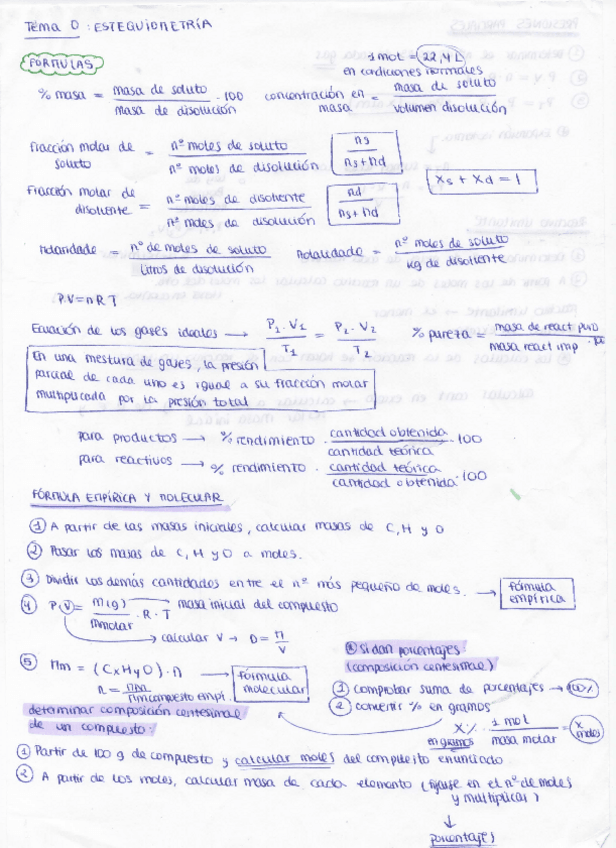 Tema 0 : ESTEQUIOMETRÍA
FÓRMULAS
1 mol = 22,4 L
en condiciones normales
% masa = masa de soluto / masa de disolución · 100
concentración en masa = masa de soluto / volumen disolución
Fracción molar de soluto = nº moles de soluto / nº moles de disolución
ns / ns + nd
Xs + Xd = 1
Fracción molar de disolvente = nº moles de disolvente / nº moles de disolución
nd / ns + nd
Molaridade = nº de moles de soluto / Litros de disolución
Molalidade = nº moles de soluto / kg de disolvente
P.V = n R T
Ecuación de los gases ideales → P1 · V1 / T1 = P2 · V2 / T2
% pureza = masa de react puro / masa react imp · 100
En una mestura de gases, la presión
parcial de cada uno es igual a su fracción molar
multiplicada por la presión total
para productos → % rendimiento · cantidad obtenida / cantidad teórica · 100
para reactivos → % rendimiento · cantidad teórica / cantidad obtenida · 100
FÓRMULA EMPÍRICA Y MOLECULAR
1 A partir de las masas iniciales, calcular masas de C, H y O
2 Pasar las masas de C, H y O a moles.
3 Dividir las demás cantidades entre el nº más pequeño de moles. → fórmula empírica
4 P.V = m(g) / Mmolar · R · T
masa inicial del compuesto
→ calcular V → D = n / V
5 Mm = (CxHyO) · n → fórmula molecular
n =
si dan porcentajes
(composición centesimal)
1 comprobar suma de porcentajes → 100%
2 convertir % en gramos
X% · 1 mol / masa molar = x moles
en gramos
determinar composición centesimal
de un compuesto:
1 Partir de 100 g de compuesto y calcular moles del compuesto enunciado
2 A partir de los moles, calcular masa de cada elemento (fijarse en el nº de moles
y multiplicar)
↓
porcentajes